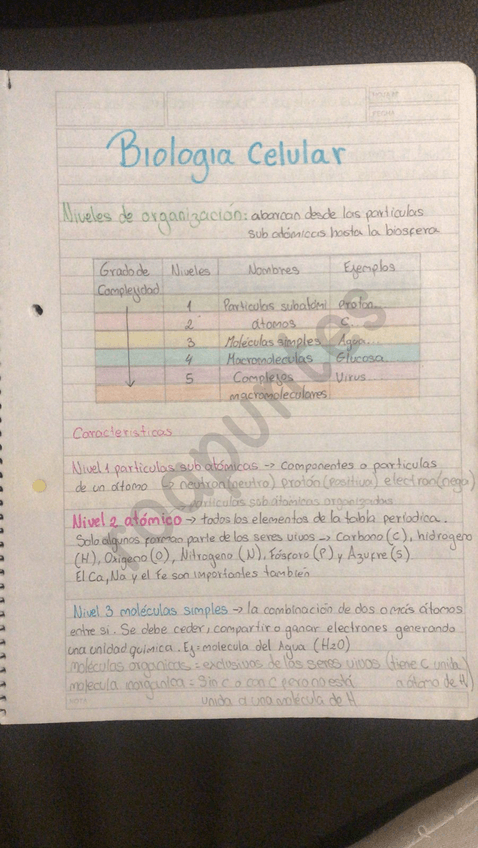 Biología Celular
Niveles de organización: abarcan desde las partículas
sub atómicas hasta la biosfera
Grado de Complejidad Niveles Nombres Ejemplos
1 Partículas subatómi Protón...
2 átomos C...
3 Moléculas simples Agua...
4 Macromoleculas Glucosa
5 Complejos macromoleculares Virus....
Características
Nivel 1 partículas sub atómicas → componentes o partículas
de un átomo → neutron (neutro) protón (positiva) electron (nega)
partículas sub atómicas organizadas
Nivel 2 atómico → todos los elementos de la tabla periódica.
Solo algunos forman parte de los seres vivos → Carbono (C), hidrogeno
(H), Oxigeno (O), Nitrogeno (N), Fósforo (P) y Azufre (S)
El Ca, Na y el Fe son importantes también
Nivel 3 moléculas simples → la combinación de dos o más átomos
entre sí. Se debe ceder, compartir o ganar electrones generando
una unidad química. Ej = molecula del Agua (H2O)
moléculas organicas = exclusivos de los seres vivos (tiene C unida
molecula inorganica = Sin C o con C pero no está a átomo de H)
unida a una molécula de H
roapuntes